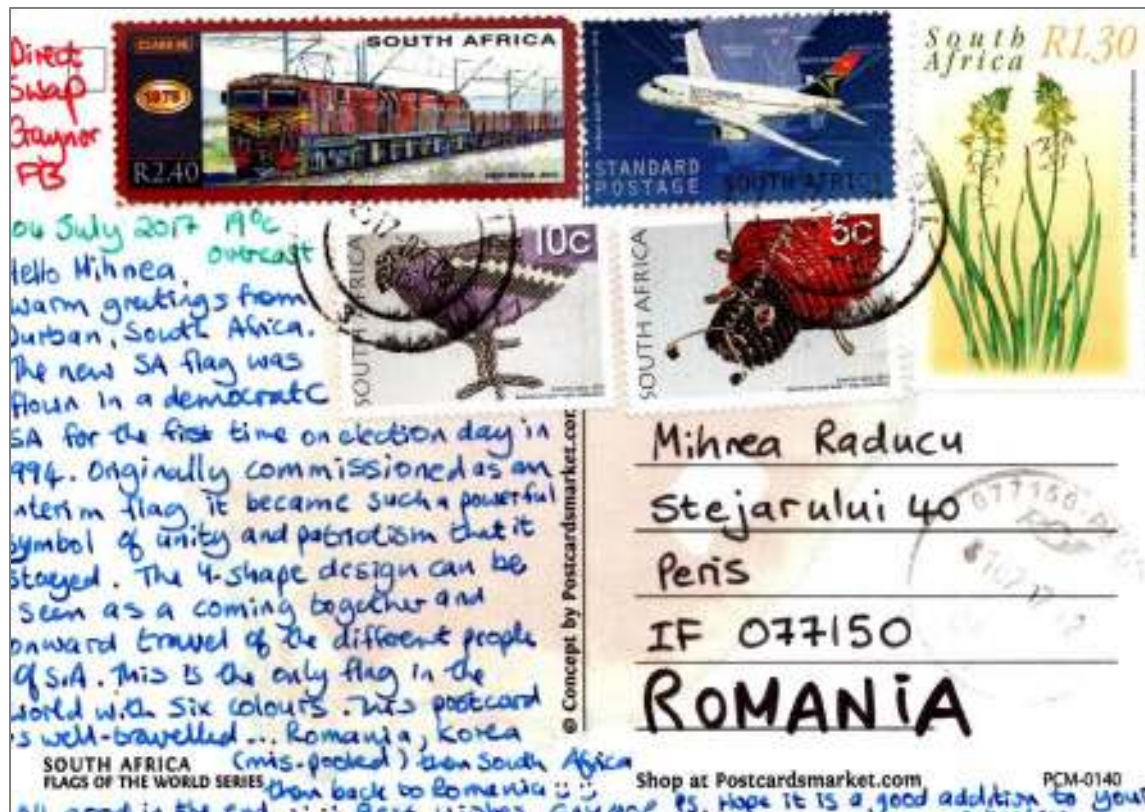 Direct
Swap
Graynor
FB
CLASS
1978
R2.40
SOUTH AFRICA
STANDARD
POSTAGE
SOUTH AFRICA
South
Africa
R1.30
10c
SOUTH AFRICA
5c
SOUTH AFRICA
04 July 2017 19°C
overcast
Hello Mihnea,
warm greetings from
Durban, South Africa.
The new SA flag was
flown in a democratC
SA for the first time on election day in
1994. Originally commissioned as an
interim flag it became such a powerful
symbol of unity and patriotism that it
stayed. The Y-shape design can be
seen as a coming together and
onward travel of the different people
of S.A. This is the only flag in the
world with six colours. This postcard
is well-travelled... Romania, Korea
(mis-posted) then South Africa
then back to Romania
All good in the end Best Wishes PS. Hope it is a good addition to your
© Concept by Postcardsmarket.com
Mihnea Raducu
Stejarului 40
Peris
IF 077150
ROMANiA
077150
SOUTH AFRICA
FLAGS OF THE WORLD SERIES
Shop at Postcardsmarket.com
PCM-0140